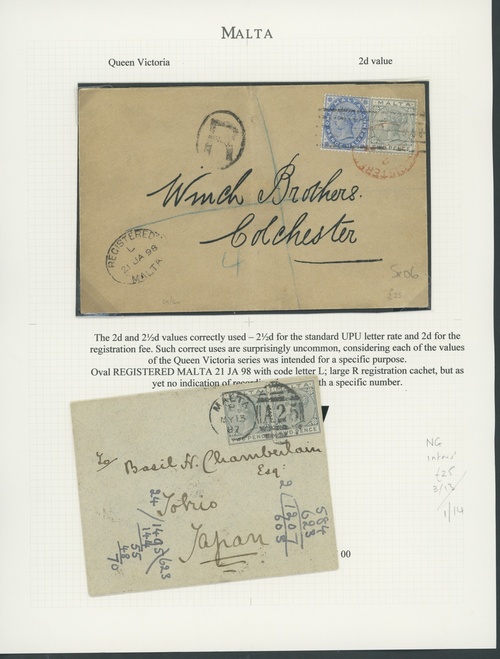 MALTA
Queen Victoria
2d value
MALTA
MALTA
R
Winch Brothers.
Colchester
REGISTERED
L
21 JA 98
MALTA
4
The 2d and 2½d values correctly used – 2½d for the standard UPU letter rate and 2d for the
registration fee. Such correct uses are surprisingly uncommon, considering each of the values
of the Queen Victoria series was intended for a specific purpose.
Oval REGISTERED MALTA 21 JA 98 with code letter L; large R registration cachet, but as
yet no indication of with a specific number.
MALTA
MY 13
87
A25
To
Basil H. Chamberlain
Esq.
Tokio
Japan
584
623
2(1207
605
24/1495/623
144
55
48
70
NG
£25
3/13
1/14
00